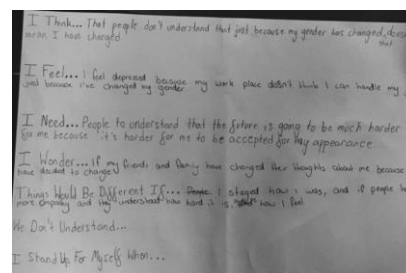 I Think... That people don't understand that just because my gender has changed, doesn't
mean I have changed.
I Feel... I feel depressed because my work place doesn't think I can handle my
just because i've changed my gender
I Need... People to understand that the future is going to be much harder
for me because it's harder for me to be accepted for my appearance.
I Wonder... If my friends and family have changed their thoughts about me because
have decided to change
Things Would Be Different If... I stayed how I was, and if people had
more empathy and understood how hard it is, how I feel
We Don't Understand...
I Stand Up For Myself When...